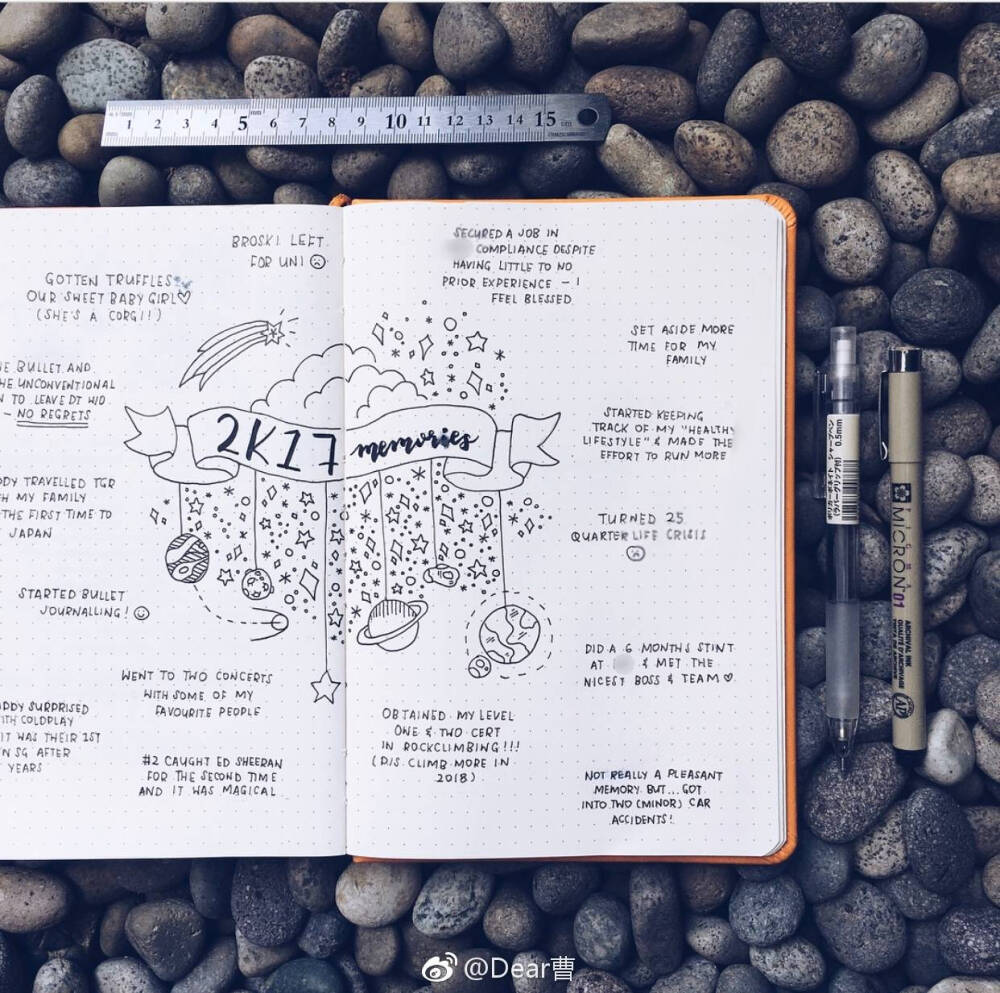 1 2 3 4 5 6 7 8 9 10 11 12 13 14 15
BROSKI LEFT
FOR UNI
GOTTEN TRUFFLES
OUR SWEET BABY GIRL♡
(SHE'S A CORGI!)
BULLET AND
UNCONVENTIONAL
TO LEAVE DT W/O
- NO REGRETS
TRAVELLED TGR
MY FAMILY
THE FIRST TIME TO
JAPAN
STARTED BULLET
JOURNALLING!
WENT TO TWO CONCERTS
WITH SOME OF MY
FAVOURITE PEOPLE
SURPRISED
COLDPLAY
IT WAS THEIR 1ST
SG AFTER
YEARS
#2 CAUGHT ED SHEERAN
FOR THE SECOND TIME
AND IT WAS MAGICAL
2K17 memories
SECURED A JOB IN
COMPLIANCE DESPITE
HAVING LITTLE TO NO
PRIOR EXPERIENCE - I
FEEL BLESSED
SET ASIDE MORE
TIME FOR MY
FAMILY
STARTED KEEPING
TRACK OF MY "HEALTHY
LIFESTYLE" & MADE THE
EFFORT TO RUN MORE
TURNED 25
QUARTER LIFE CRISIS
DID A 6 MONTHS STINT
AT & MET THE
NICEST BOSS & TEAM♡
OBTAINED MY LEVEL
ONE & TWO CERT
IN ROCKCLIMBING!!!
(P/S CLIMB MORE IN
2018)
NOT REALLY A PLEASANT
MEMORY BUT...GOT
INTO TWO (MINOR) CAR
ACCIDENTS!
シャープペン 0.5mm
(ラバーグリップ付)
MICRON 01
ARCHIVAL INK
@Dear曹